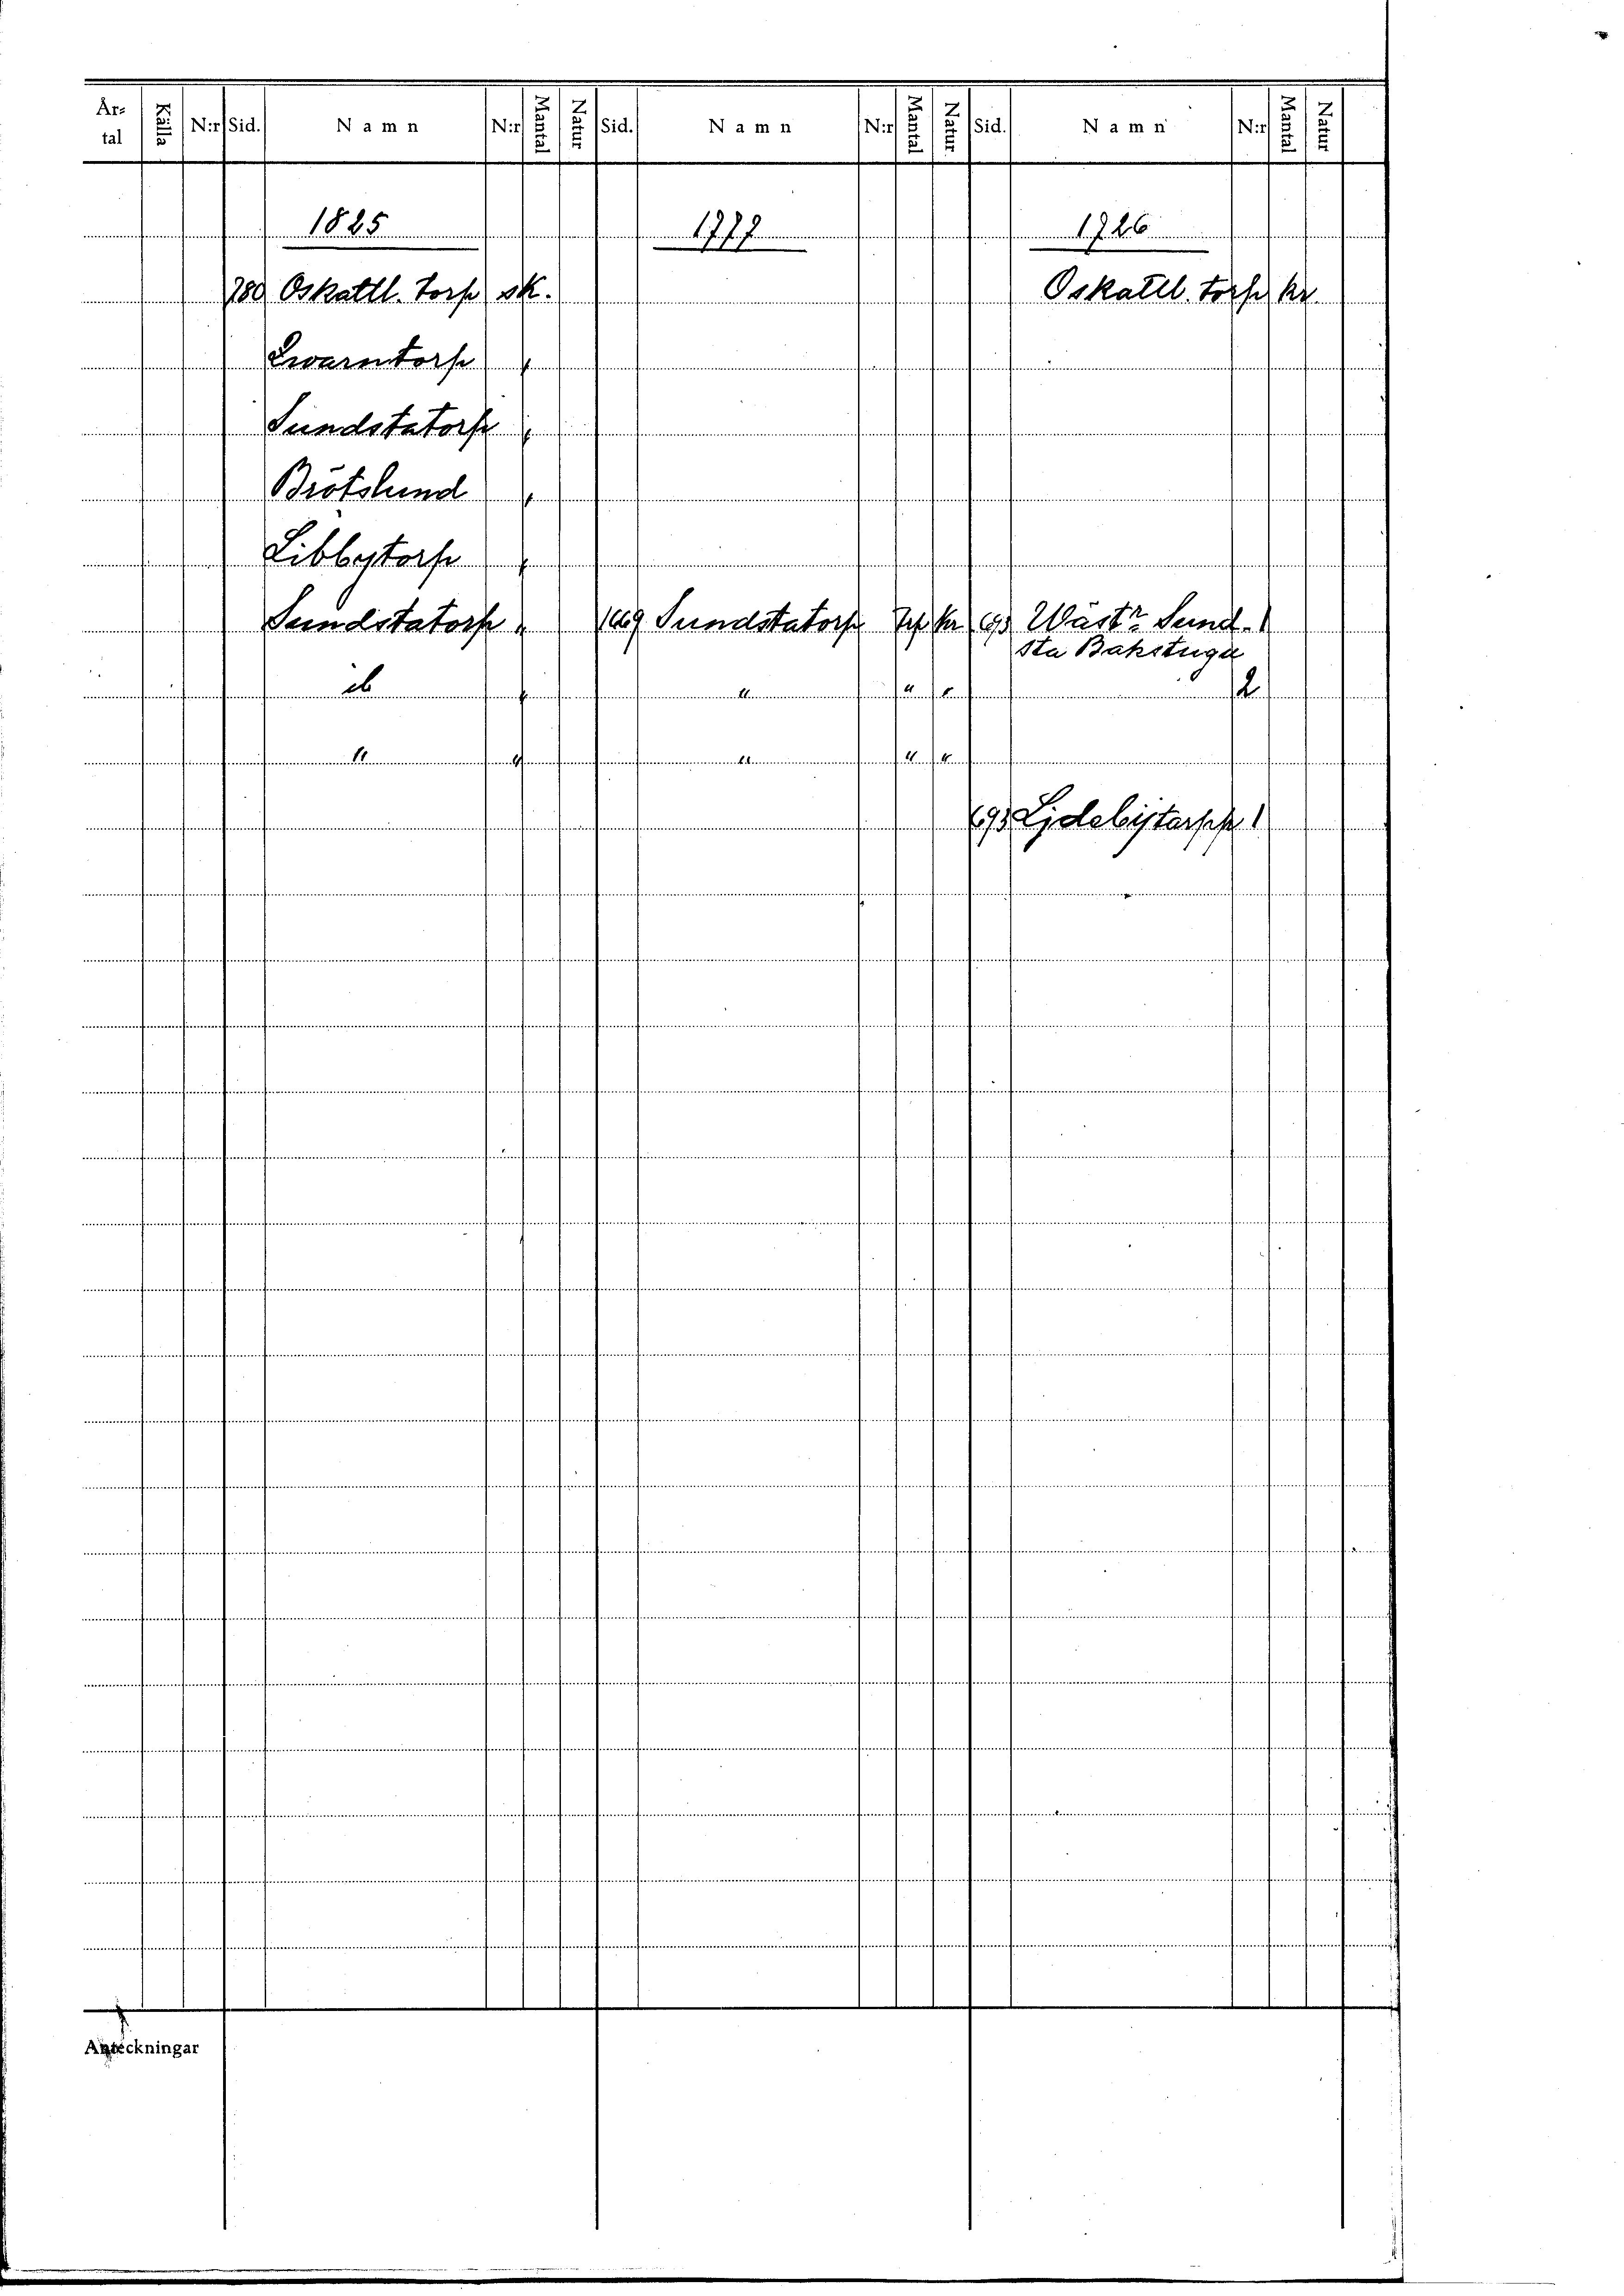 År- tal Källa N:r Sid. Namn N:r Mantal Natur Sid. Namn N:r Mantal Natur Sid. Namn N:r Mantal Natur
1825 1777 1726
780 Oskattl. torp sk. Oskattl. torp kr
Qwarntorp "
Sundstatorp "
Brötslund "
Libbytorp "
Sundstatorp " 1669 Sundstatorp Tp kr 693 Wästr Sund- 1
sta Bakstuga
ib " " " " 2
" " " " "
693 Lidebytorpp 1
Anteckningar